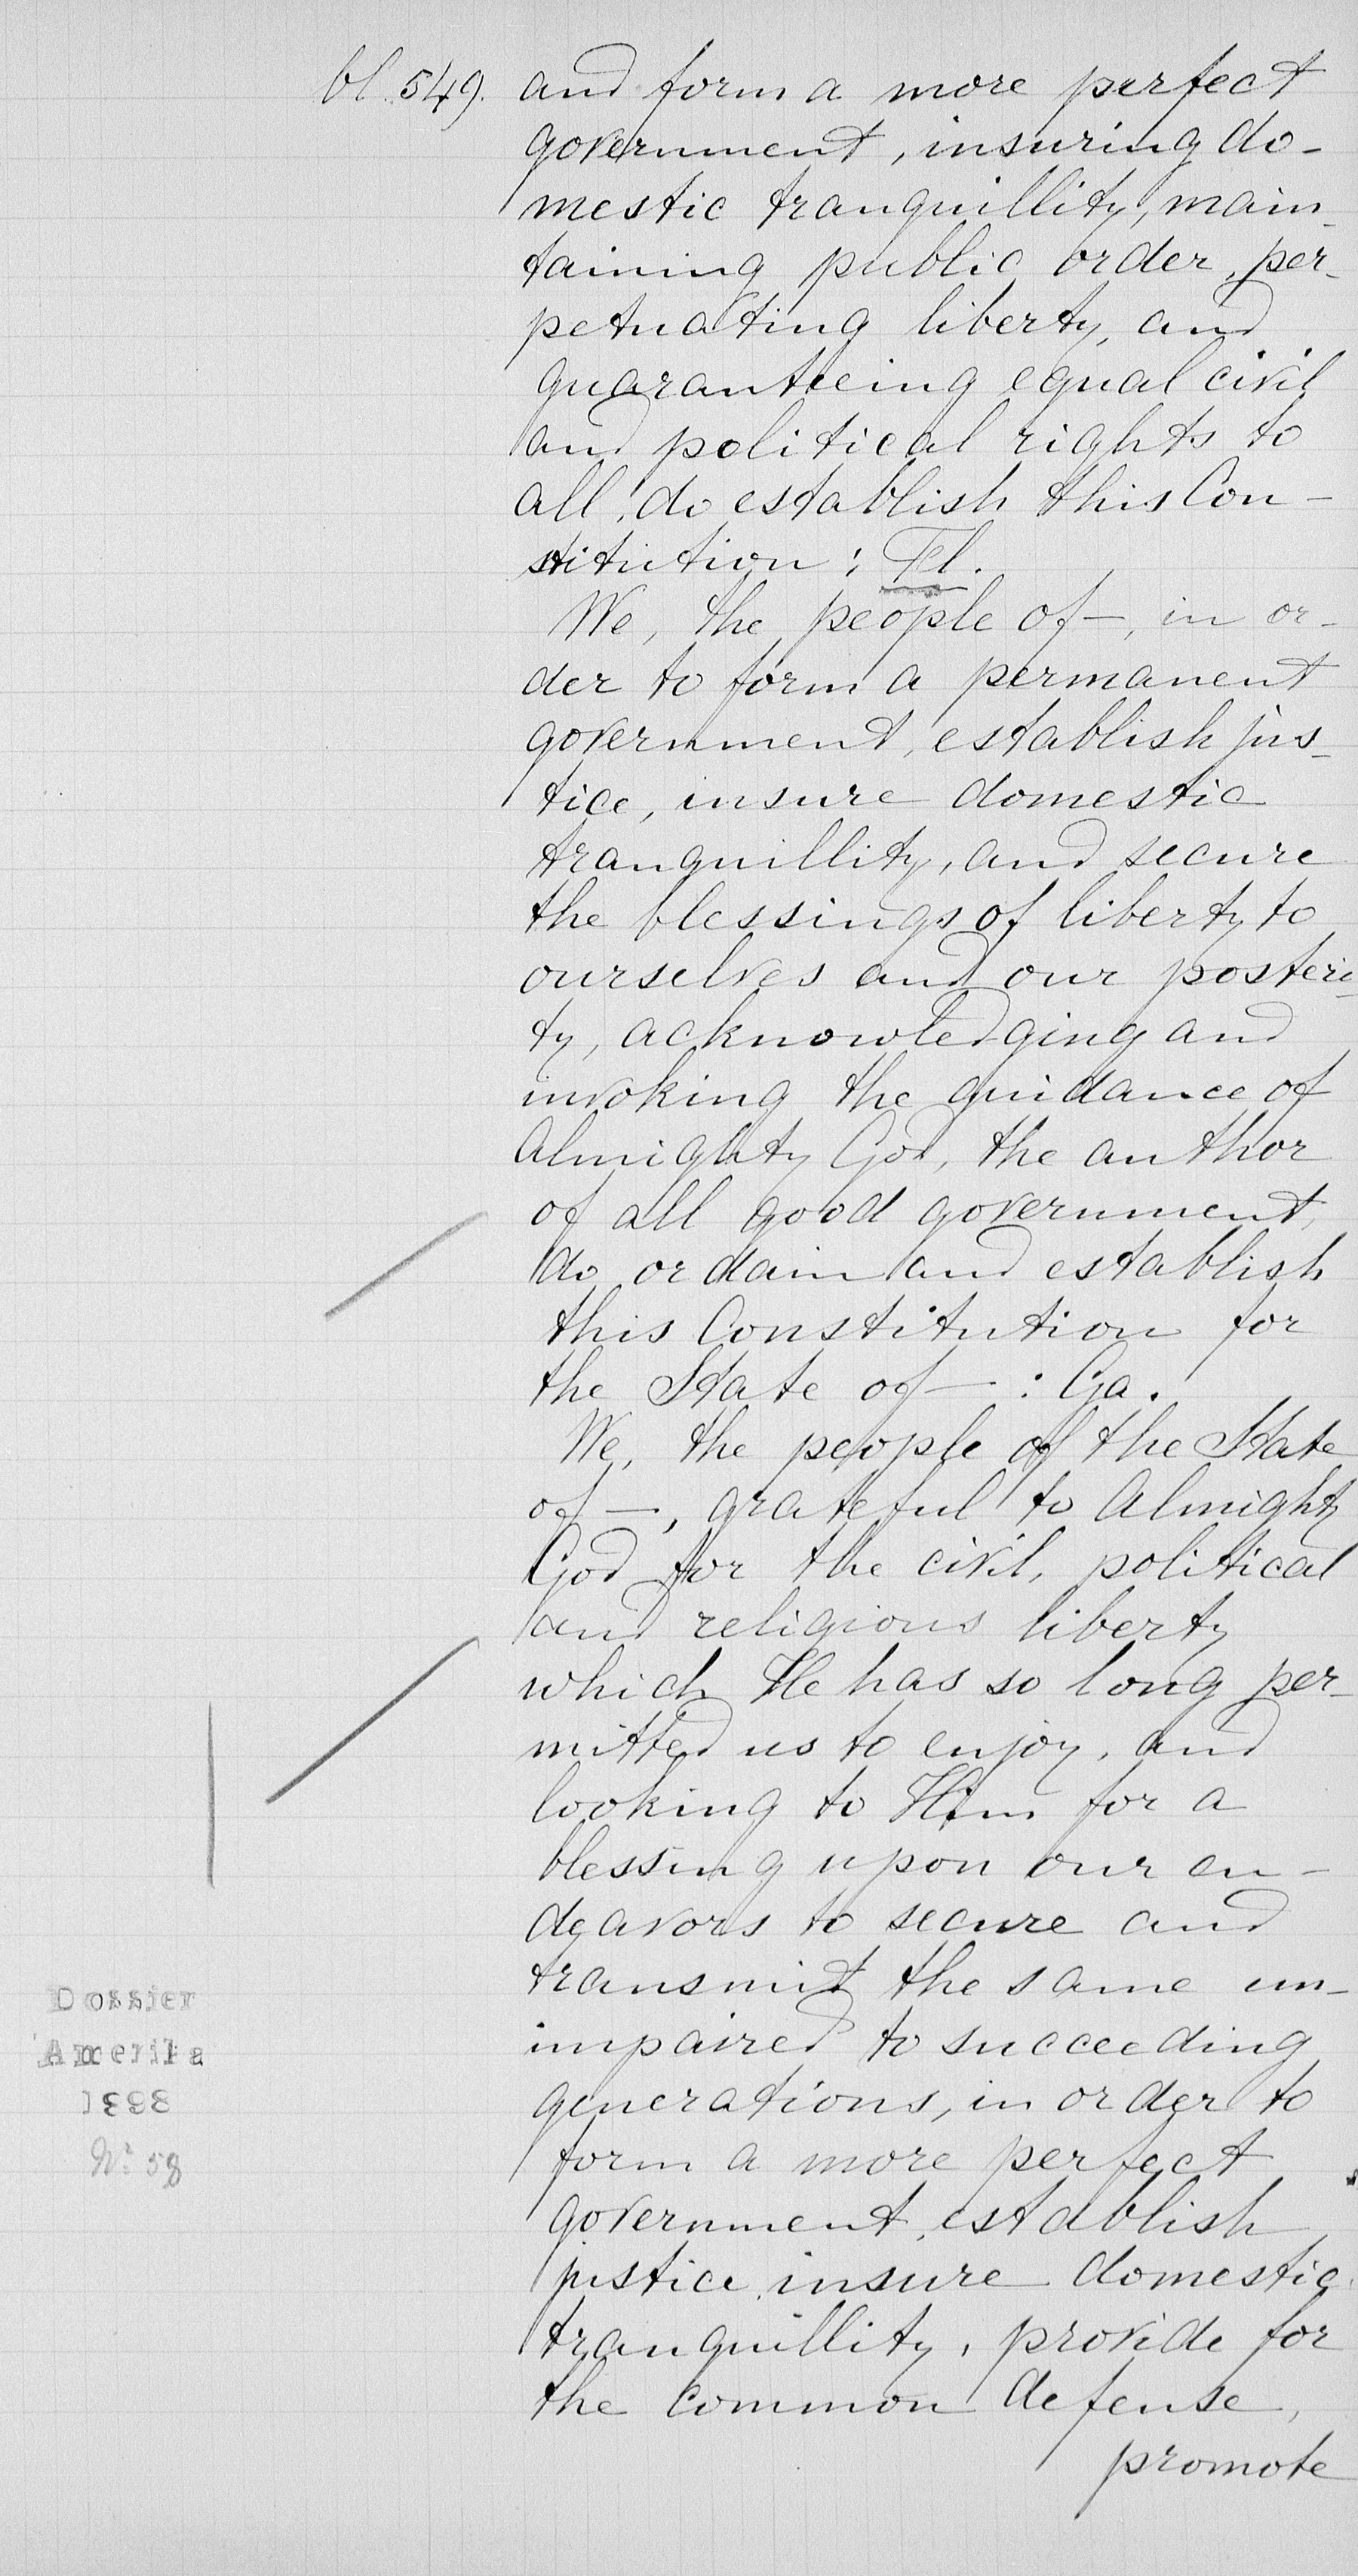 bl. 549. and form a more perfect
government, insuring do-
mestic tranquillity, main-
taining public order, per-
petuating liberty, and
guaranteeing equal civil
and political rights to
all, do establish this Con-
stitution: Fl.
We, the people of —, in or-
der to form a permanent
government, establish jus-
tice, insure domestic
tranquillity, and secure
the blessings of liberty to
ourselves and our posteri-
ty, acknowledging and
invoking the guidance of
Almighty God, the author
of all good government,
do ordain and establish
this Constitution for
the State of — : Ga.
We, the people of the State
of —, grateful to Almighty
God for the civil, political
and religious liberty
which He has so long per-
mitted us to enjoy, and
looking to Him for a
blessing upon our en-
deavors to secure and
transmit the same un-
impaired to succeeding
generations, in order to
form a more perfect
government, establish
justice, insure domestic
tranquillity, provide for
the common defense,
promote
Dossier
Amerika
1898
No 58